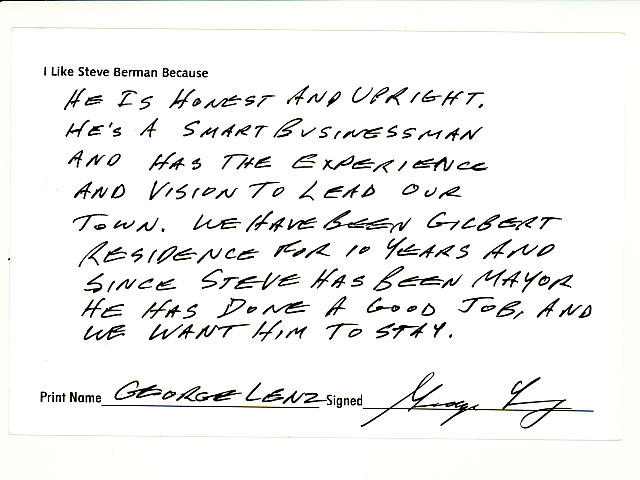 I Like Steve Berman Because
HE IS HONEST AND UPRIGHT.
HE'S A SMART BUSINESSMAN
AND HAS THE EXPERIENCE
AND VISION TO LEAD OUR
TOWN. WE HAVE BEEN GILBERT
RESIDENCE FOR 10 YEARS AND
SINCE STEVE HAS BEEN MAYOR
HE HAS DONE A GOOD JOB, AND
WE WANT HIM TO STAY.
Print Name GEORGE LENZ Signed